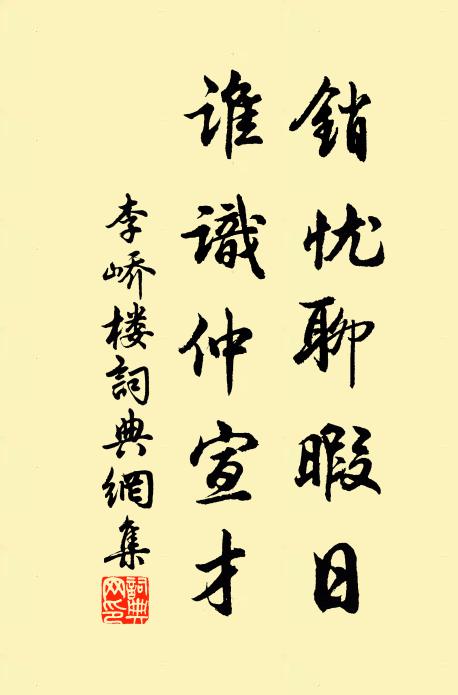 銷忧聊暇日
谁識仲宣才
李峤楼詞典網集
詞典网印